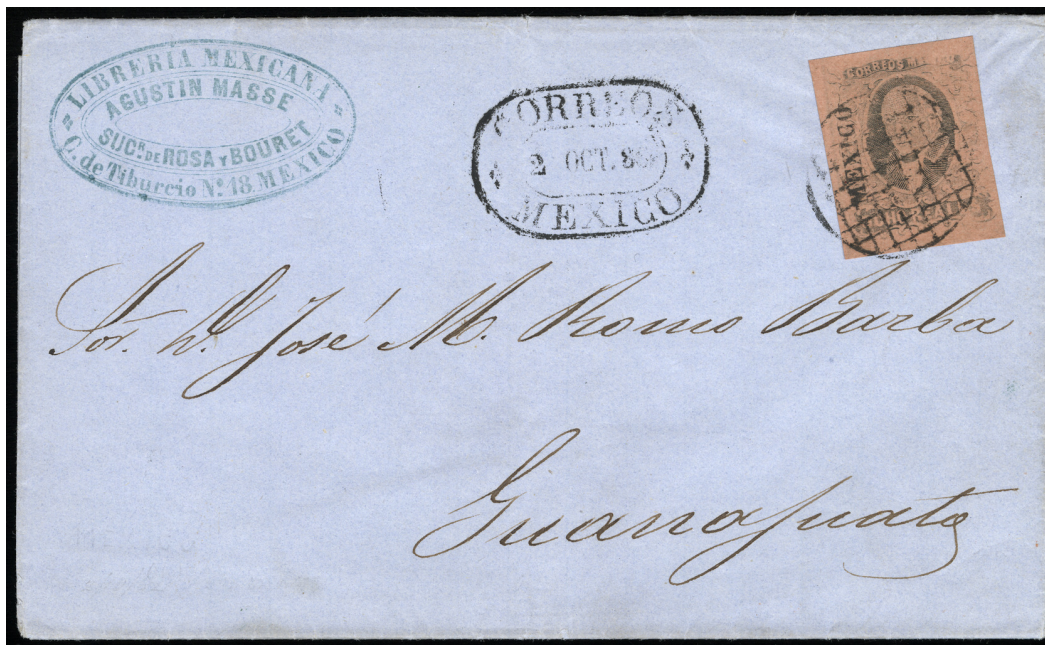 LIBRERIA MEXICANA
AGUSTIN MASSE
SUCR. DE ROSA Y BOURET
C. de Tiburcio No. 18. MEXICO
CORREOS
2 OCT.
MEXICO
CORREOS
MEXICO
Sor. D. José M. Romo Barba
Guanajuato